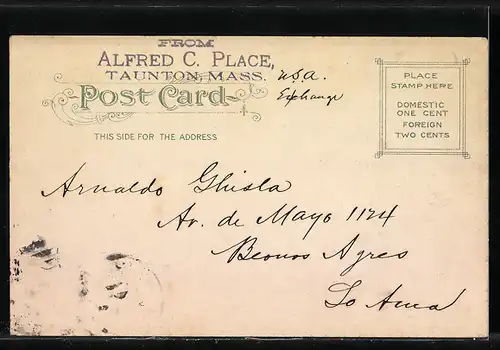 FROM
ALFRED C. PLACE,
TAUNTON, MASS. U.S.A.
Post Card Exchange
THIS SIDE FOR THE ADDRESS
PLACE
STAMP HERE
DOMESTIC
ONE CENT
FOREIGN
TWO CENTS
Arnaldo Ghisla
Av. de Mayo 1124
Beunos Ayres
So Ama